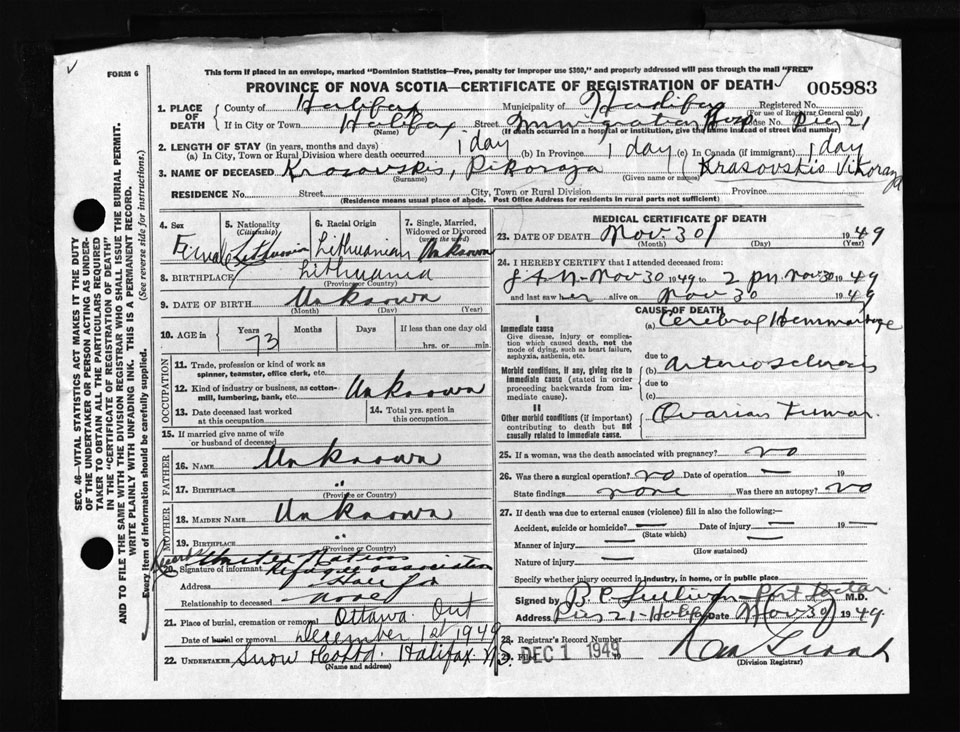 This form if placed in an envelope, marked "Dominion Statistics—Free, penalty for improper use $300," and properly addressed will pass through the mail "FREE"
FORM 6
PROVINCE OF NOVA SCOTIA—CERTIFICATE OF REGISTRATION OF DEATH 005983
SEC. 46—VITAL STATISTICS ACT MAKES IT THE DUTY
OF THE UNDERTAKER OR PERSON ACTING AS UNDER-
TAKER TO OBTAIN ALL THE PARTICULARS REQUIRED
IN THE "CERTIFICATE OF REGISTRATION OF DEATH"
AND TO FILE THE SAME WITH THE DIVISION REGISTRAR WHO SHALL ISSUE THE BURIAL PERMIT.
WRITE PLAINLY WITH UNFADING INK. THIS IS A PERMANENT RECORD.
Every item of information should be carefully supplied. (See reverse side for instructions.)
1. PLACE OF DEATH County of Halifax Municipality of Halifax Registered No.
(For use of Registrar General only)
If in City or Town Halifax Street Immigration Hosp House No. Pier 21
(Name) (If death occurred in a hospital or institution, give the name instead of street and number)
2. LENGTH OF STAY (in years, months and days)
(a) In City, Town or Rural Division where death occurred 1 day (b) In Province 1 day (c) In Canada (if immigrant) 1 day
3. NAME OF DECEASED Krasovskis, Pikoraja (Krasovskis Vikoraja
(Surname) (Given name or names)
RESIDENCE No. Street City, Town or Rural Division Province
(Residence means usual place of abode. Post Office Address for residents in rural parts not sufficient)
4. Sex 5. Nationality (Citizenship) 6. Racial Origin 7. Single, Married, Widowed or Divorced (write the word)
Female Lithuanian Lithuanian Unknown
8. BIRTHPLACE Lithuania
(Province or Country)
9. DATE OF BIRTH Unknown
(Month) (Day) (Year)
10. AGE in Years Months Days If less than one day old
73 hrs. or min.
OCCUPATION
11. Trade, profession or kind of work as spinner, teamster, office clerk, etc.
12. Kind of industry or business, as cotton-mill, lumbering, bank, etc. Unknown
13. Date deceased last worked at this occupation 14. Total yrs. spent in this occupation
15. If married give name of wife or husband of deceased
FATHER
16. NAME Unknown
17. BIRTHPLACE "
(Province or Country)
MOTHER
18. MAIDEN NAME Unknown
19. BIRTHPLACE "
(Province or Country)
20. Signature of informant United Nations Refugee Association
Address Halifax
Relationship to deceased none
21. Place of burial, cremation or removal Ottawa Ont
Date of burial or removal December 1st 1949
22. UNDERTAKER Snow Co Ltd. Halifax N.S.
(Name and address)
MEDICAL CERTIFICATE OF DEATH
23. DATE OF DEATH Nov 30 1949
(Month) (Day) (Year)
24. I HEREBY CERTIFY that I attended deceased from:
Nov 30 1949 to 2 pm Nov 30 1949
and last saw her alive on Nov 30 1949
CAUSE OF DEATH
I
Immediate cause (a) Cerebral Hemmorhage
Give disease, injury or complication which caused death, not the mode of dying, such as heart failure, asphyxia, asthenia, etc.
due to
Morbid conditions, if any, giving rise to immediate cause (stated in order proceeding backwards from immediate cause). (b) Arteriosclerosis
due to
(c)
II
Other morbid conditions (if important) contributing to death but not causally related to immediate cause. Ovarian Tumor.
25. If a woman, was the death associated with pregnancy? no
26. Was there a surgical operation? no Date of operation — 19
State findings none Was there an autopsy? no
27. If death was due to external causes (violence) fill in also the following:—
Accident, suicide or homicide? — Date of injury — 19 —
(State which)
Manner of injury —
(How sustained)
Nature of injury —
Specify whether injury occurred in industry, in home, or in public place
Signed by B. C. Sullivan - Port Doctor M.D.
Address Pier 21 - Halifax Date Nov 30 1949
28. Registrar's Record Number
29. Filed DEC 1 1949 19
(Division Registrar)